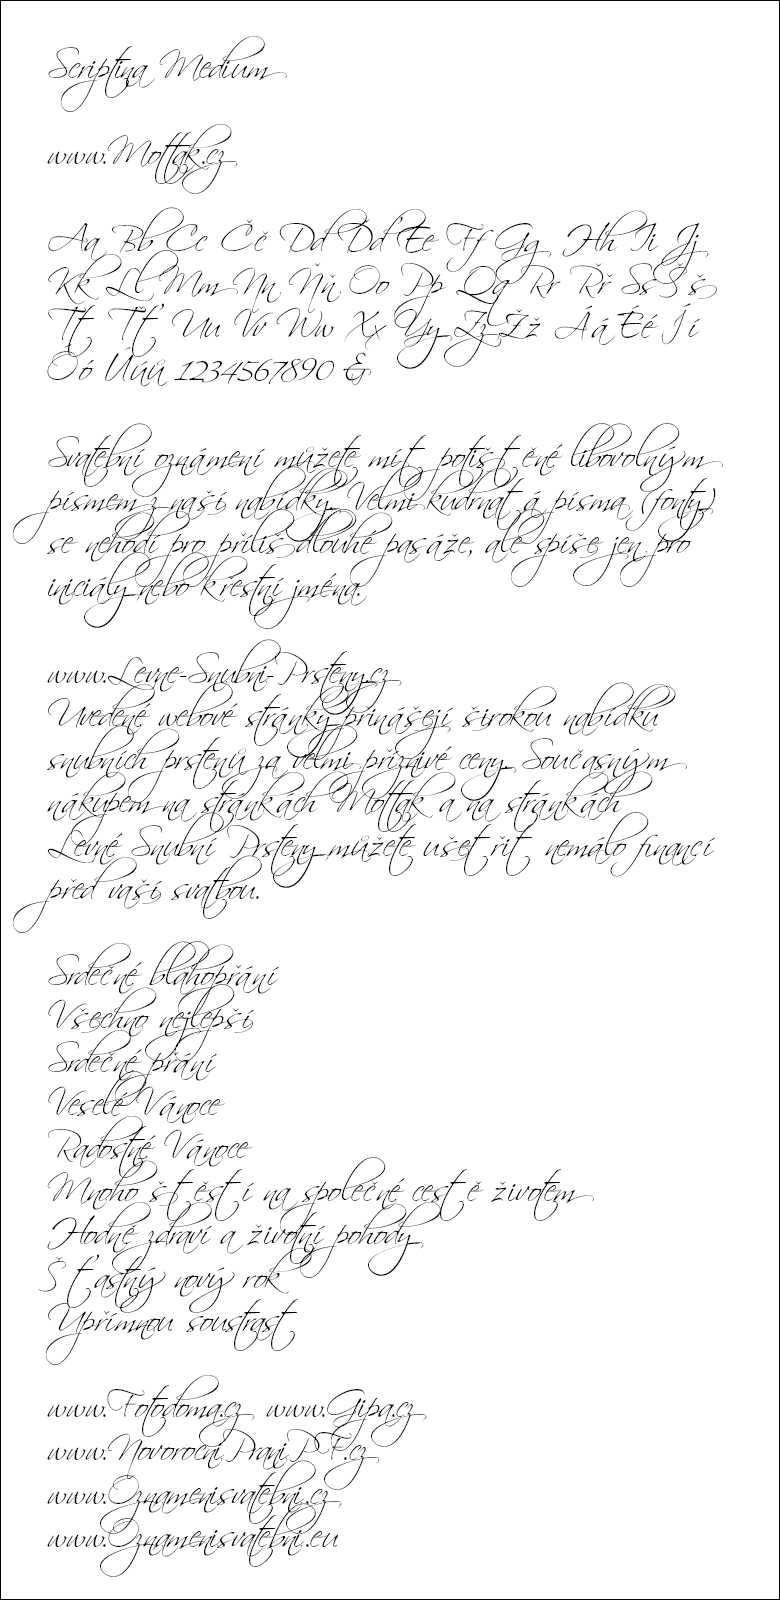 Scriptina Medium
www.Mottak.cz
Aa Bb Cc Čč Dd Ďď Ee Ff Gg Hh Ii Jj
Kk Ll Mm Nn Ňň Oo Pp Qq Rr Řř Ss Šš
Tt Ťť Uu Vv Ww Xx Yy Zz Žž Áá Éé Íí
Óó Úúů 1234567890 &
Svatební oznámení můžete mít potištěné libovolným
písmem z naší nabídky. Velmi kudrnatá písma (fonty)
se nehodí pro příliš dlouhé pasáže, ale spíše jen pro
iniciály nebo křestní jména.
www.Levne-Snubni-Prsteny.cz
Uvedené webové stránky přinášejí širokou nabídku
snubních prstenů za velmi příznivé ceny. Současným
nákupem na stránkách Mottak a na stránkách
Levné Snubní Prsteny můžete ušetřit nemálo financí
před vaší svatbou.
Srdečné blahopřání
Všechno nejlepší
Srdečné přání
Veselé Vánoce
Radostné Vánoce
Mnoho štěstí na společné cestě životem
Hodně zdraví a životní pohody
Šťastný nový rok
Upřímnou soustrast
www.Fotodoma.cz www.Gipa.cz
www.NovorocniPraniPF.cz
www.Oznamenisvatebni.cz
www.Oznamenisvatebni.eu